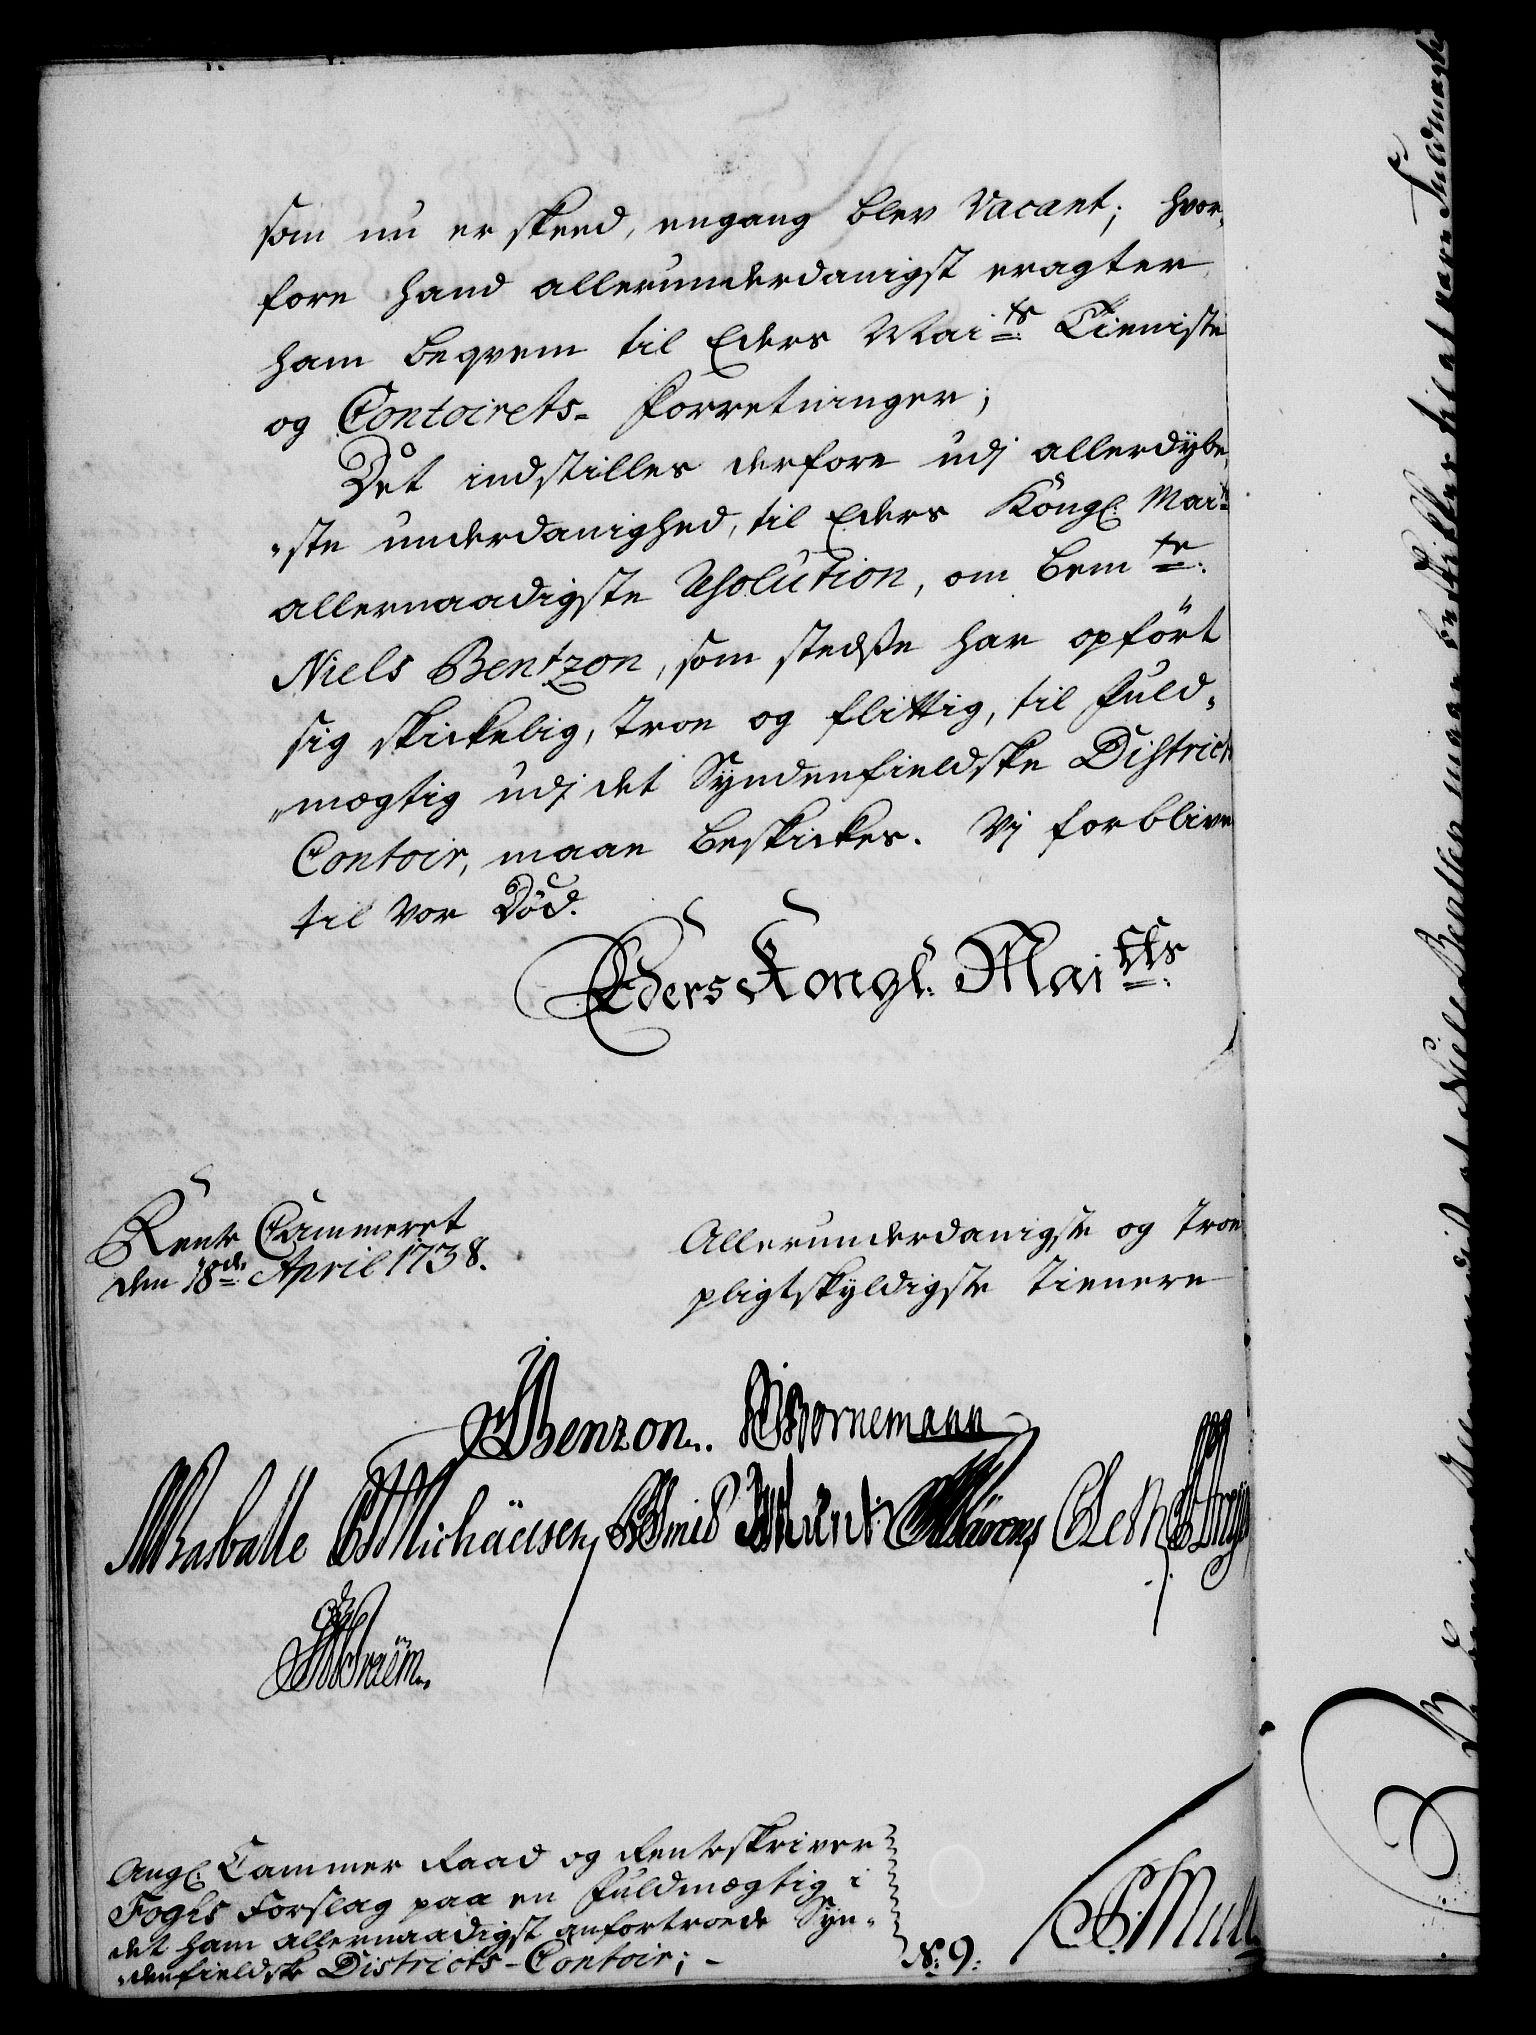 som nu er skeed, engang blev vacant; hvor,
fore hand allerunderdanigst eragter
ham beqvem til Eders Mai<sup>ts</sup> Tieniste
og Contoirets- Forretninger;
Det indstilles derfore udj allerdybe,
"ste underdanighed, til Eders Kongl. Mai<sup>ts</sup>
allernaadigste Resolution, om bem<sup>te</sup>:
Niels Bentzon, som stedsse har opført
sig skickelig, troe og flittig, til Fuld,
"mægtig udj det Syndenfieldske District
Contoir, maae beskickes. Vj forblive
til vor Død.
Eders Kongl. Mai<sup>tts</sup>
Rente Cammeret
den 18<sup>de</sup> April 1738.
Allerunderdanigste og troe
pligtskyldigste Tienere
Benzon. Bornemann
Basballe Michäelsen Smid Munk
Angl. Cammer Raad og Renteskriver
Foghs Forslag paa en Fuldmægtig i
det ham allernaadigst anfortroede Syn,
"denfieldske Districts-Contoir; -
N: 9:
Mull
Niels Bentzen maae bestilles til at være Fuldmægtig